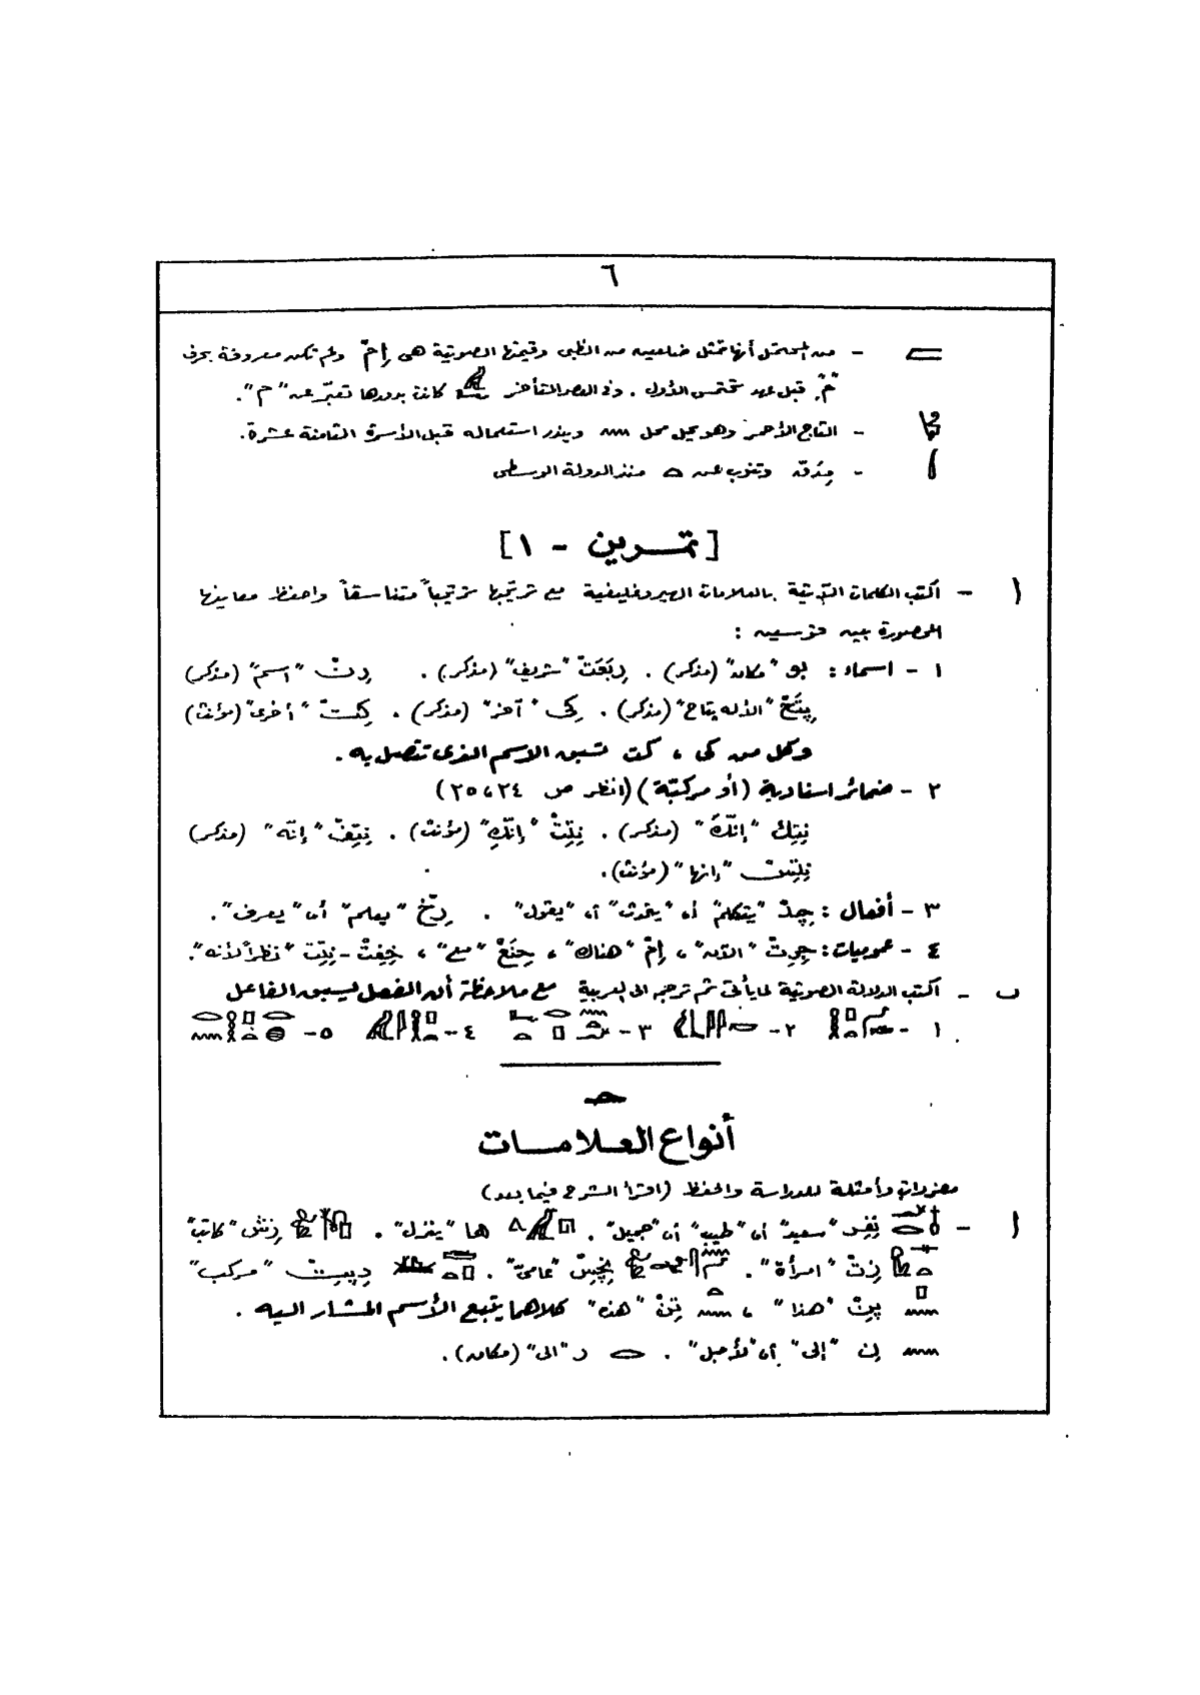 ٦
- من المحتمل أنها تمثل ضلعين من الظبى وقيمتها الصوتية هى إِمّ ولم تكن معروفة بحرف
"مّ" قبل عهد تحتمس الأول . وفى العصر المتأخر كانت بدورها تعبّر عن "م".
- التاج الأحمر وهو يحل محل ويندر استعماله قبل الأسرة الثامنة عشرة.
- مِدَقّه وتنوب عن منذ الدولة الوسطى
[تمـرين - ١]
أ - أكتب الكلمات الآتية بالعلامات الهيروغليفية مع ترتيبها ترتيباً متناسقاً واحفظ معانيها
المحصورة بين قوسين :
١ - اسماء: بو "مكان" (مذكر) . رِبَعَتْ "شريف" (مذكر) . رِنْ "اسم" (مذكر)
بِتَحْ "الأله بتاح" (مذكر) . كِى "آخر" (مذكر) . كِتْ "أخرى" (مؤنث)
وكل من كى ، كت تسبق الاسم الذى تتصل به .
٢ - ضمائر اسنادية (أو مركبة) (انظر ص ٢٤، ٢٥)
نِتِك "إنّكَ" (مذكر) . نِتِتْ "إنّكِ" (مؤنث) . نِتِفْ "إنّه" (مذكر)
نِتِسْ "إنها" (مؤنث).
٣ - أفعال : جِدْ "يتكلم" أى "يتحدث" أى "يقول" . رِخْ "يعلم" أى "يعرف".
٤ - عموميات: جِرِتْ "الآن" ، إِمْ "هناك" ، حِنَعْ "مع" ، خِفِتْ - نِتِت "نظراً لأنه".
ب - أكتب الدلالة الصوتية لما يأتى ثم ترجمه الى العربية مع ملاحظة أن الفعل يسبق الفاعل
١ - ٢ - ٣ - ٤ - ٥ -
حـ
أنواع العـلامـات
مفردات وأمثلة للدراسة والحفظ (اقرأ الشرح فيما بعد)
أ - نِفِر "سعيد" أى "طيب" أى "جميل". ها "ينزل" . زِش "كاتب"
زِتْ "امرأة" . نِجِسْ "عامىّ" . دِبِتْ "مركب"
بِنْ "هذا" ، تِنْ "هذه" كلاهما يتبع الأسم المشار اليه .
نِ "إلى" أى "لأجل" . ر "الى" (مكان).